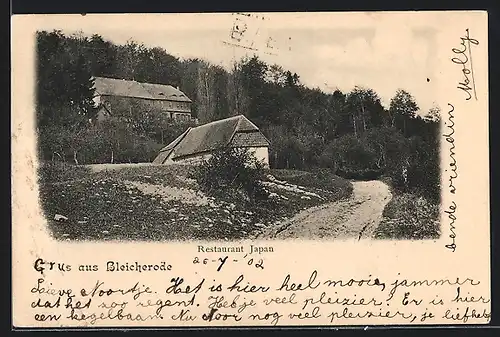 BLEI
Restaurant Japan
Gruss aus Bleicherode
26-7-'02
Lieve Noortje. Het is hier heel mooi, jammer
dat het zoo regent. Heb je veel plezier? Er is hier
een kegelbaan. Nu Noor nog veel plezier, je liefheb
bende vriendin
Molly